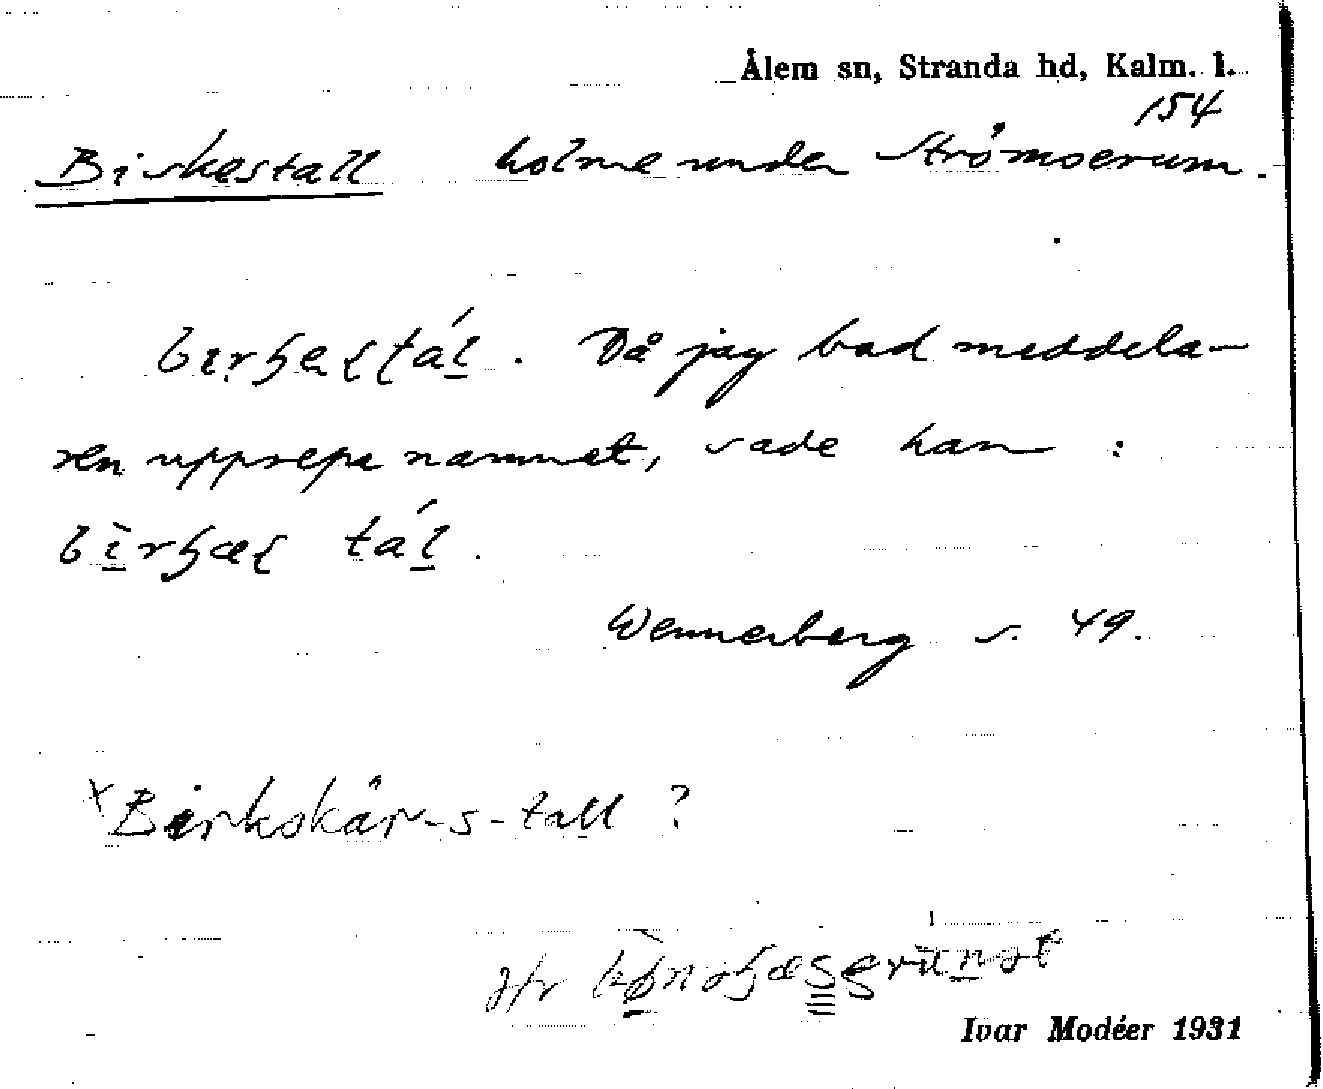 Ålem sn, Stranda hd, Kalm. l.
154
Birkestall holme under Strömserum.
Då jag bad meddela-
ren upprepa namnet, sade han :
Wennerberg s. 49.
×Birkskär-s-tall ?
Jfr
Ivar Modéer 1931